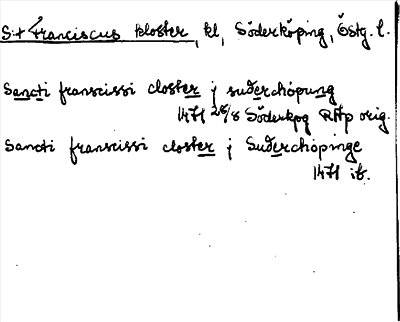 S:t Franciscus kloster, kl, Söderköping, Östg. l.
Sancti franscissi closter j suderchöpung
1471 28/8 Söderkpg RAp orig.
Sancti franscissi closter j Suderchöpinge
1471 ib.